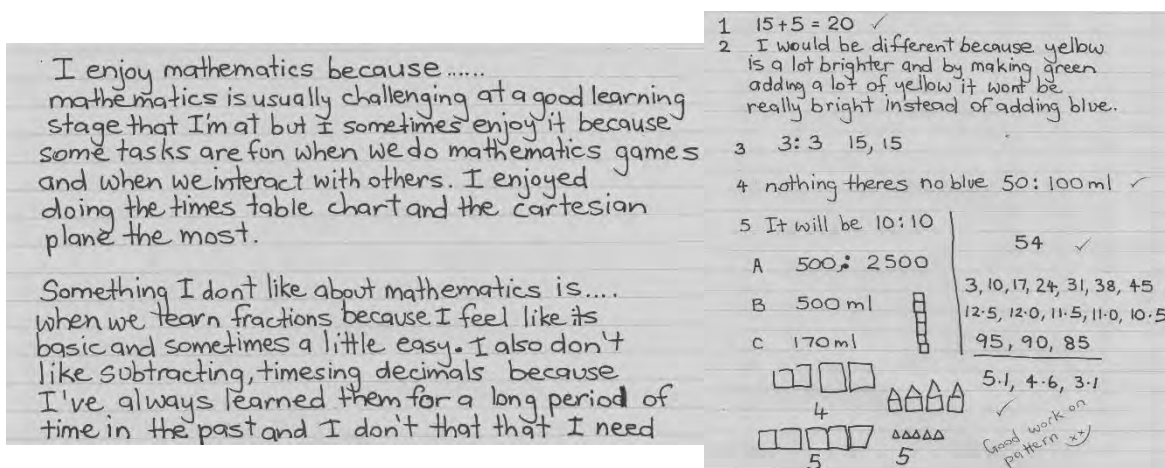 I enjoy mathematics because......
mathematics is usually challenging at a good learning
stage that I'm at but I sometimes enjoy it because
some tasks are fun when we do mathematics games
and when we interact with others. I enjoyed
doing the times table chart and the cartesian
plane the most.
Something I dont like about mathematics is....
when we learn fractions because I feel like its
basic and sometimes a little easy. I also don't
like subtracting, timesing decimals because
I've always learned them for a long period of
time in the past and I don't that that I need
1 15+5 = 20 ✓
2 I would be different because yellow
is a lot brighter and by making green
adding a lot of yellow it wont be
really bright instead of adding blue.
3 3:3 15, 15
4 nothing theres no blue 50:100ml ✓
5 It will be 10:10
A 500: 2500
B 500 ml
C 170ml
4
5
5
54 ✓
3, 10, 17, 24, 31, 38, 45
12.5, 12.0, 11.5, 11.0, 10.5
95, 90, 85
5.1, 4.6, 3.1
✓
Good work on
pattern xx